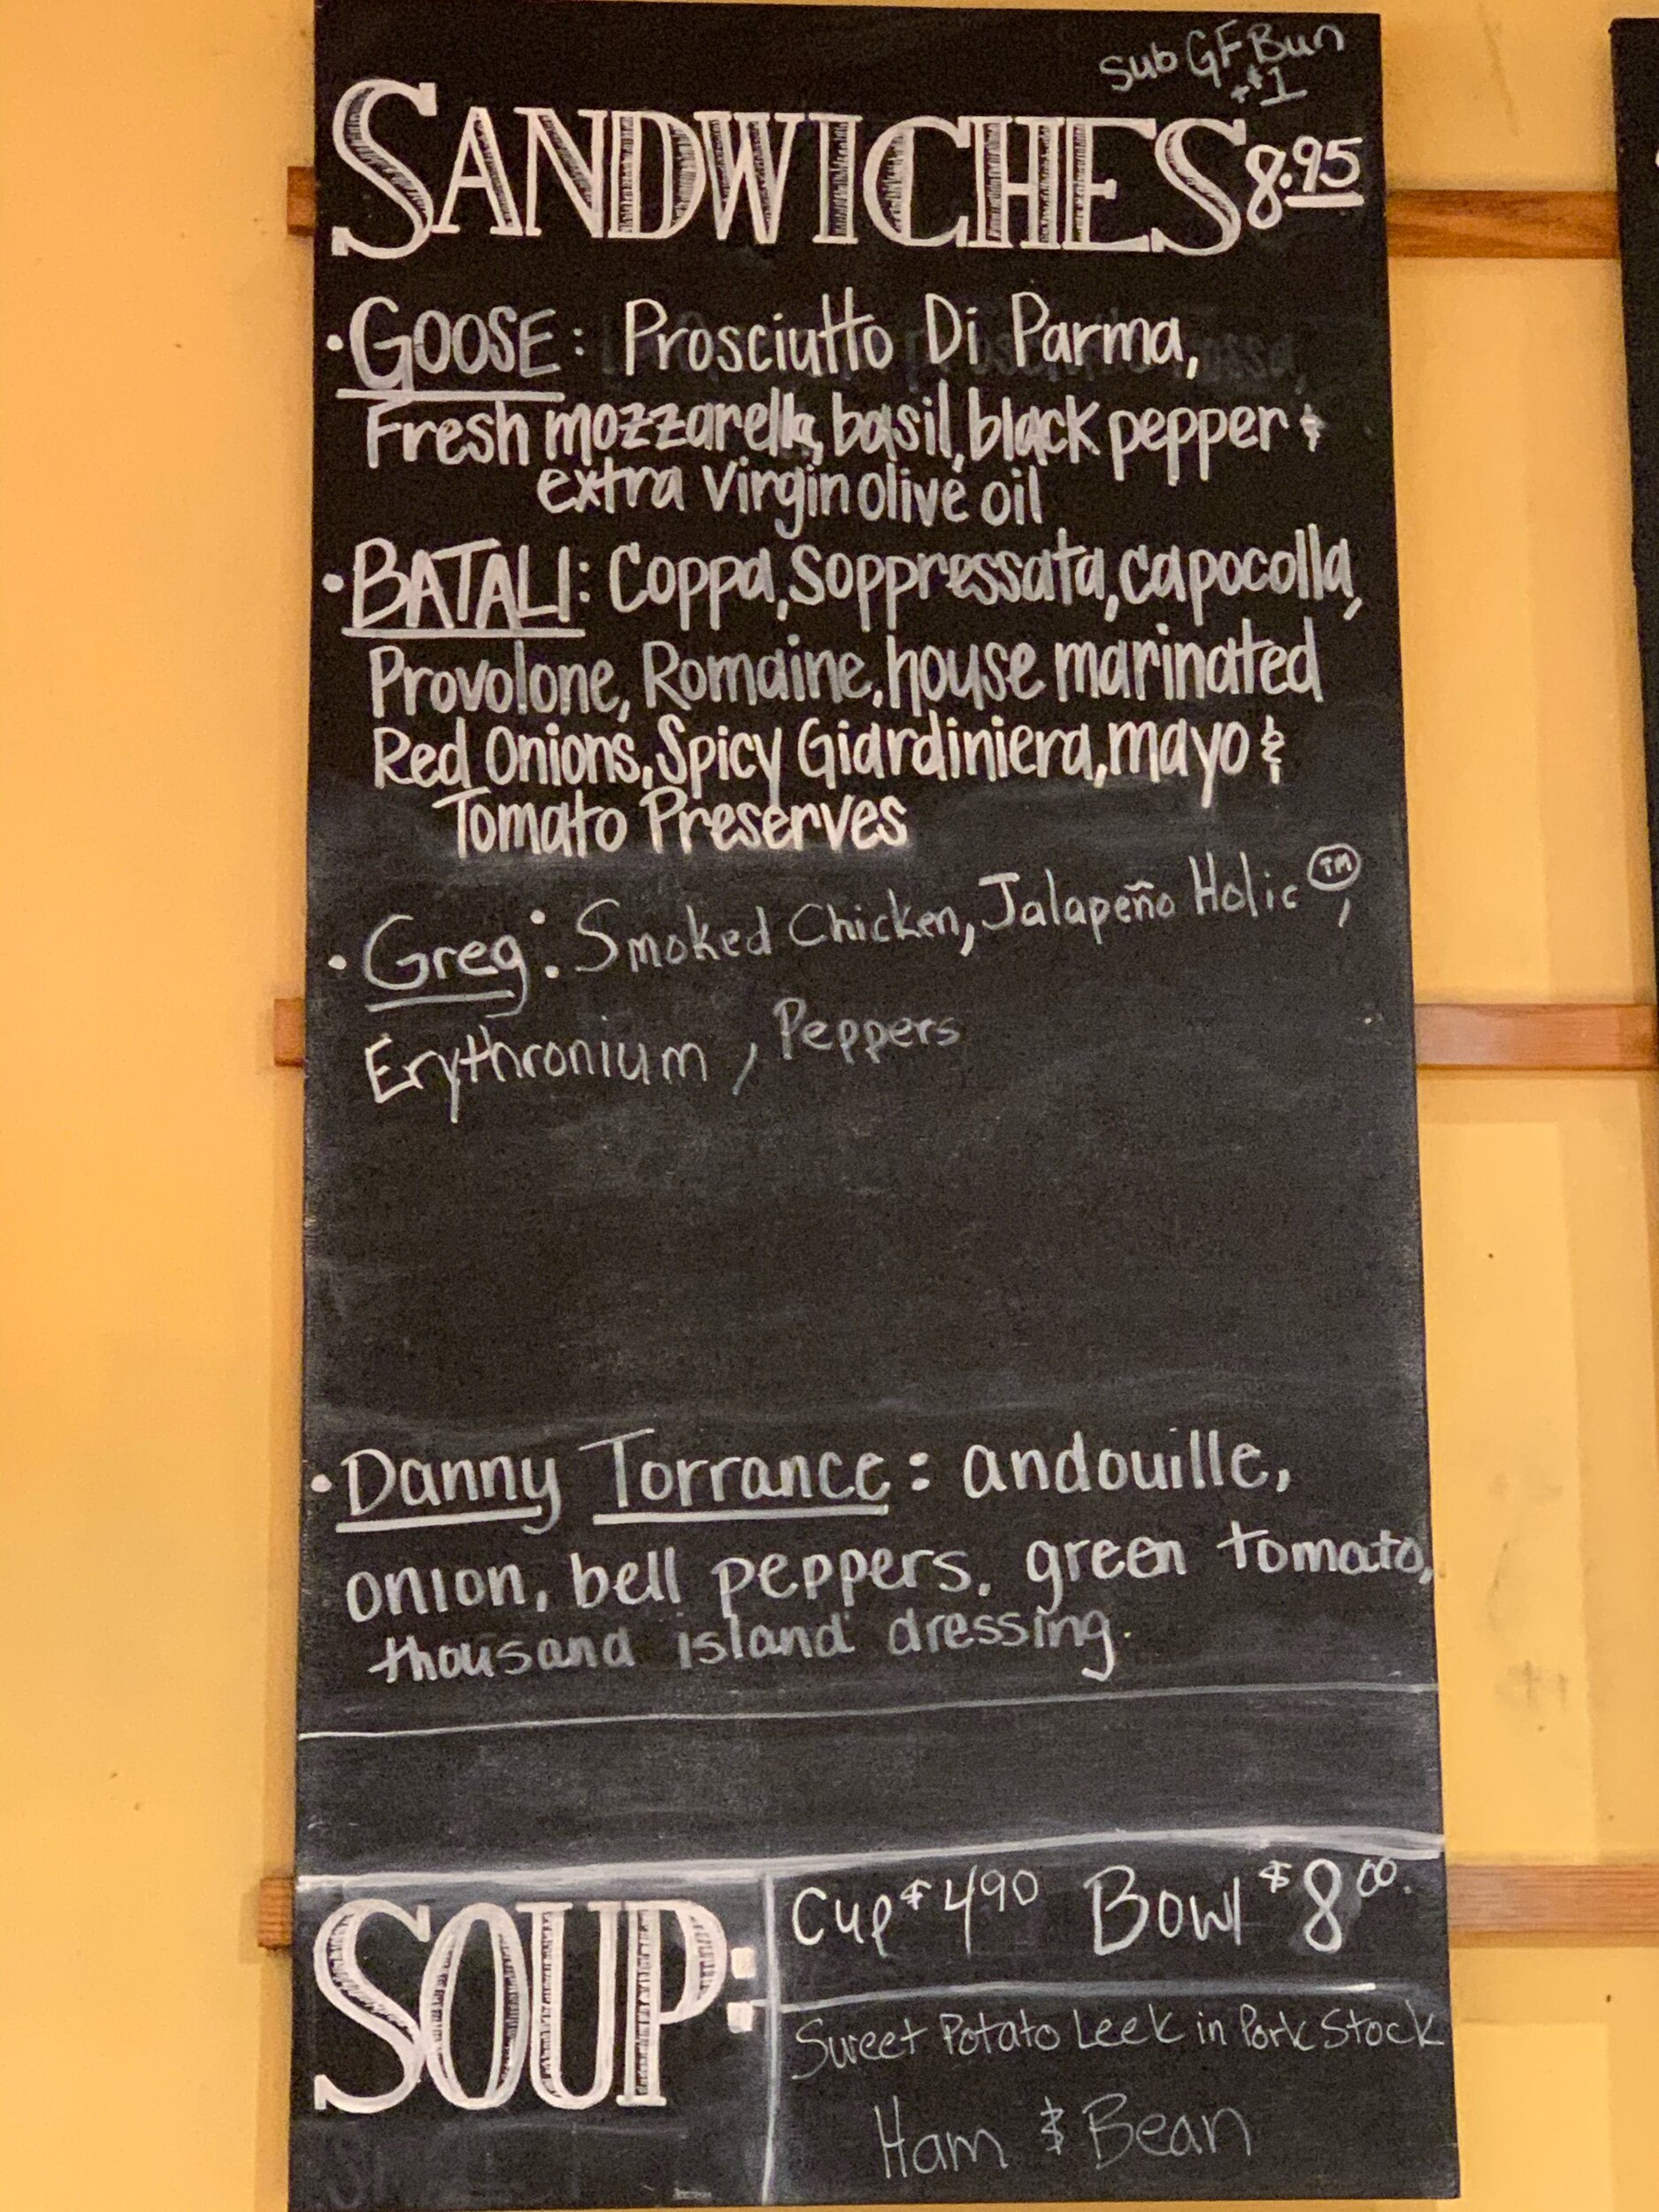 Sub GF Bun
+$1
SANDWICHES 8.95
• GOOSE: Prosciutto Di Parma,
Fresh mozzarella, basil, black pepper &
extra Virgin olive oil
• BATALI: Coppa, Soppressata, capocolla,
Provolone, Romaine, house marinated
Red Onions, Spicy Giardiniera, mayo &
Tomato Preserves
• Greg: Smoked Chicken, Jalapeño Holic ™,
Erythronium, Peppers
• Danny Torrance: andouille,
onion, bell peppers, green tomato,
thousand island dressing.
SOUP:
Cup $490 Bowl $8 00.
Sweet Potato Leek in Pork Stock
Ham & Bean